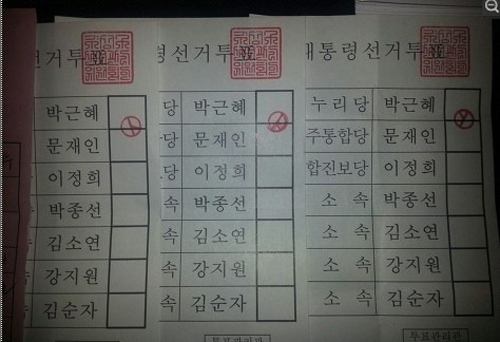 선거투표
박근혜
문재인
이정희
박종선
김소연
강지원
김순자
령선거투표
당 박근혜
당 문재인
당 이정희
속 박종선
속 김소연
속 강지원
속 김순자
대통령선거투표
누리당 박근혜
주통합당 문재인
합진보당 이정희
소속 박종선
소속 김소연
소속 강지원
소속 김순자
투표관리관
투표관리관